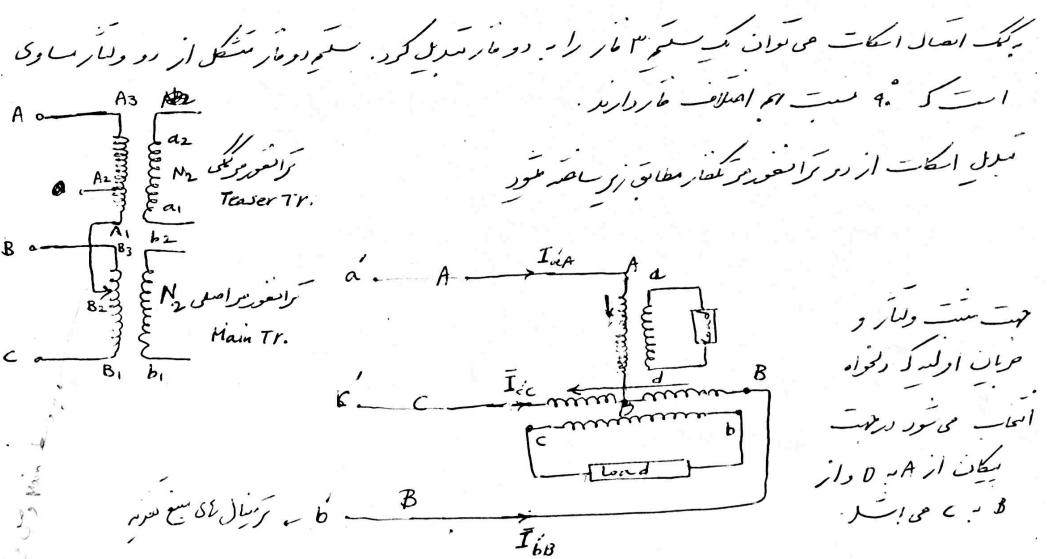 بکمک اتصال اسکات می توان یک سیستم ۳ فاز را به دو فاز تبدیل کرد. سیستم دو فاز متشکل از دو ولتاژ مساوی
است که ۹۰° نسبت بهم اختلاف فاز دارند.
تبدیل اسکات از دو ترانسفورمر تکفاز مطابق زیر ساخته میشود
A A3
a2
A2 N2 ترانسفورمر کمکی
a1 Teaser Tr.
A1
B B3 b2
B2 N2 ترانسفورمر اصلی
Main Tr.
C B1 b1
a' A I a'A A a
d
D B
c' C I c'C
c b
Load
ترمینال های منبع تغذیه b' B
I b'B
جهت مثبت ولتاژ و
جریان اولیه که دلخواه
انتخاب می شود در جهت
پیکان از A به D و از
B به C می باشد.